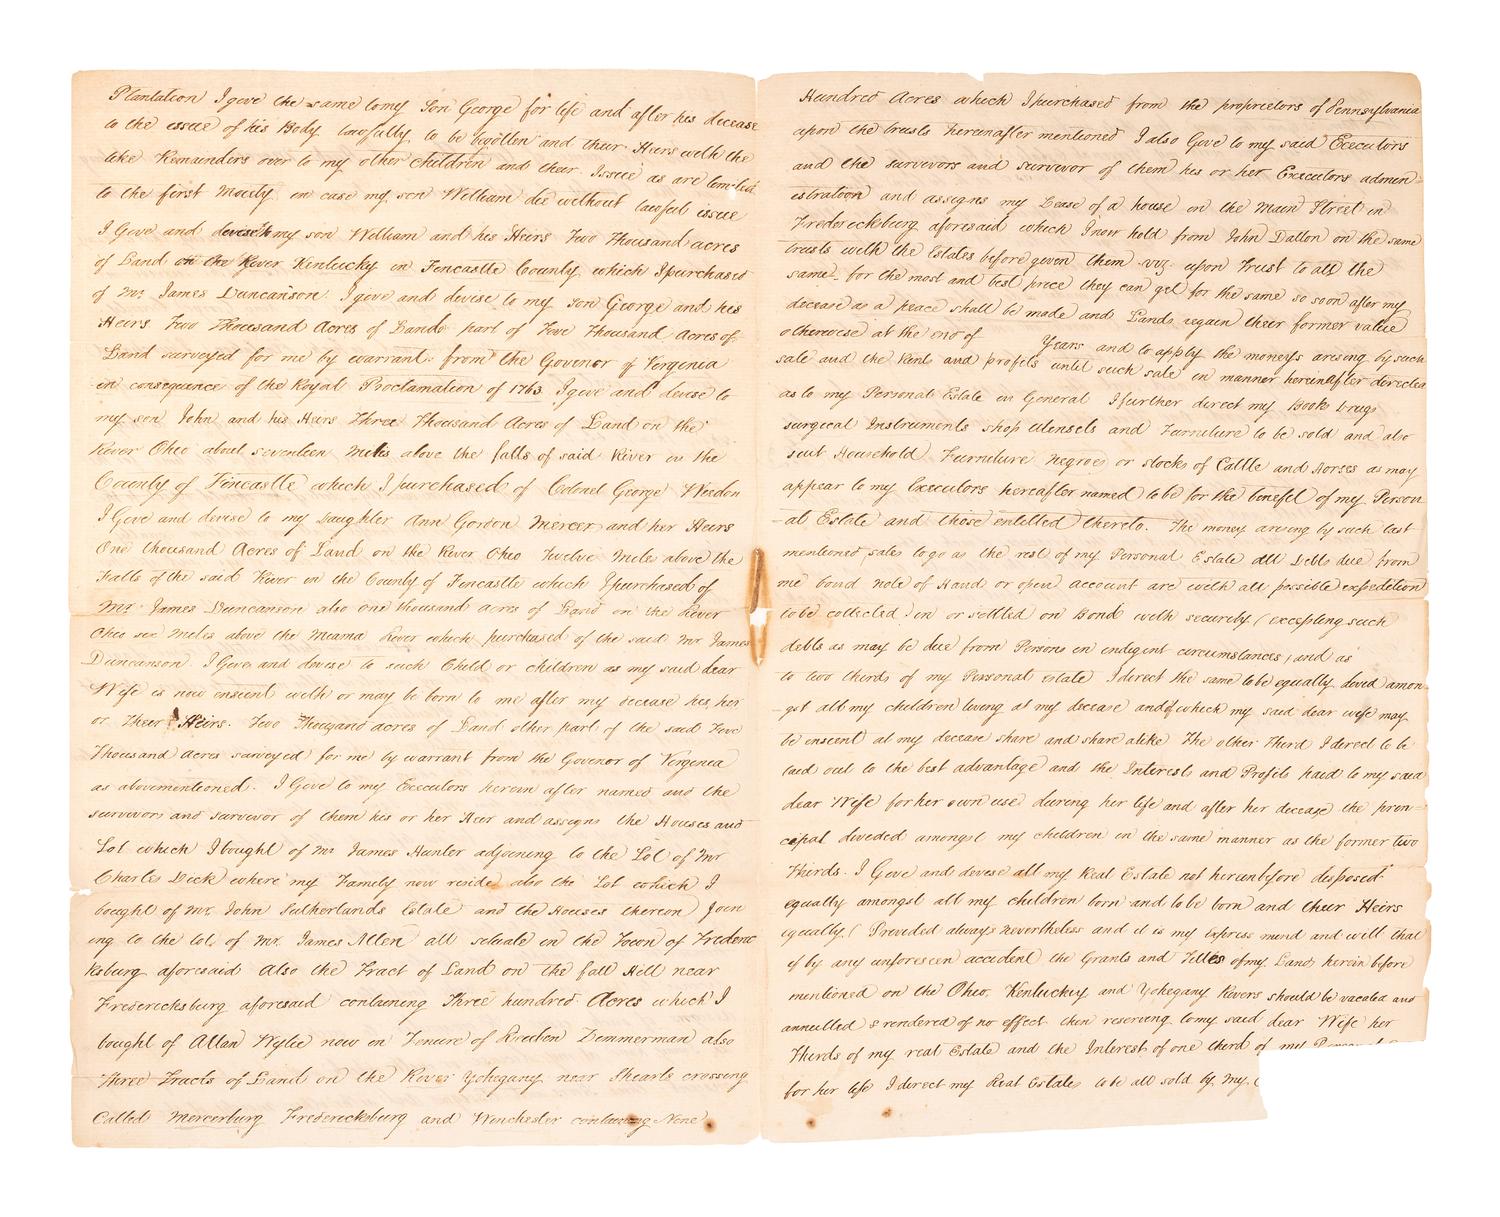 Plantation I give the same to my Son George for life and after his decease
to the issue of his Body lawfully to be begotten and their Heirs with the
like Remainders over to my other children and their Issue as are limited
to the first Moety in case my son William die without lawful issue
I Give and devise to my son William and his Heirs Two Thousand acres
of Land on the River Kentucky in Fincastle County which I purchased
of Mr. James Duncanson I give and devise to my son George and his
Heirs Two Thousand Acres of Land part of Five Thousand Acres of
Land surveyed for me by warrant from the Govenor of Virginia
in consequence of the Royal Proclamation of 1763 I give and devise to
my son John and his Heirs Three Thousand Acres of Land on the
River Ohio about seventeen Miles above the falls of said River in the
County of Fincastle which I purchased of Colonel George Weedon
I Give and devise to my Daughter Ann Gordon Mercer and her Heirs
One thousand Acres of Land on the River Ohio Twelve Miles above the
Falls of the said River in the County of Fincastle which I purchased of
Mr. James Duncanson also one thousand acres of Land on the River
Ohio six Miles above the Miama River which purchased of the said Mr James
Duncanson I Give and devise to such Child or children as my said dear
Wife is now ensient with or may be born to me after my decease his, her
or Their Heirs. Two Thousand acres of Land other part of the said Five
Thousand Acres surveyed for me by warrant from the Govenor of Virginia
as abovementioned. I Give to my Executors herein after named and the
survivors and survivor of them his or her Heir and assigns the Houses and
Lot which I bought of Mr James Hunter adjoining to the Lot of Mr
Charles Dick where my Family now reside also the Lot which I
bought of Mr. John Sutherlands Estate and the Houses thereon Join
ing to the lot of Mr. James Allen all situate in the Town of Frederic
ksburg aforesaid Also the Tract of Land on the fall Hill near
Fredericksburg aforesaid containing Three hundred Acres which I
bought of Allan Wylie now on Tenure of Reuben Zimmerman also
Three Tracts of Land on the River Yohogany near Stearts crossing
Called Mercerburg Fredericksburg and Winchester containing Nine
Hundred Acres which I purchased from the proprietors of Pennsylvania
upon the trusts hereinafter mentioned I also Give to my said Executors
and the survivors and survivor of them his or her Executors admin-
istration and assigns my Lease of a house on the Main Street in
Fredericksburg aforesaid which I now hold from John Dalton on the same
trusts with the Estates before given them viz. upon Trust to all the
same for the most and best price they can get for the same so soon after my
decease as a peace shall be made and Lands regain their former value
otherwise at the end of Years and to apply the moneys arising by such
sale and the Rents and profits until such sale in manner hereinafter directed
as to my Personal Estate in General I further direct my Books Drugs
surgical Instruments shop Utensels and Furniture to be sold and also
such Household Furniture negroes or stocks of Cattle and Horses as may
appear to my Executors hereafter named to be for the benefit of my Person
-al Estate and those entitled thereto. The money arising by such last
mentioned sales to go as the rest of my Personal Estate all Debts due from
me bond note of Hand or open account are with all possible expedition
to be collected in or settled on Bond with security (excepting such
debts as may be due from Persons in indigent circumstances) and as
to two thirds of my Personal estate I direct the same to be equally divid amon-
-gst all my children living at my decease and of which my said dear wife may
be ensient at my decease share and share alike The other Third I direct to be
laid out to the best advantage and the Interest and Profits paid to my said
dear Wife for her own use during her life and after her decease the prin-
cipal divided amongst my children in the same manner as the former two
Thirds. I Give and devise all my Real Estate not hereinbefore disposed
equally amongst all my children born and to be born and their Heirs
equally (Provided always nevertheless and it is my express mind and will that
if by any unforeseen accident the Grants and Titles of my Land herein before
mentioned on the Ohio, Kentuckey and Yohogany Rivers should be vacated and
annulled & rendered of no effect then reserving to my said dear Wife her
Thirds of my real Estate and the Interest of one third of my Personal
for her life I direct my Real Estate to be all sold by my